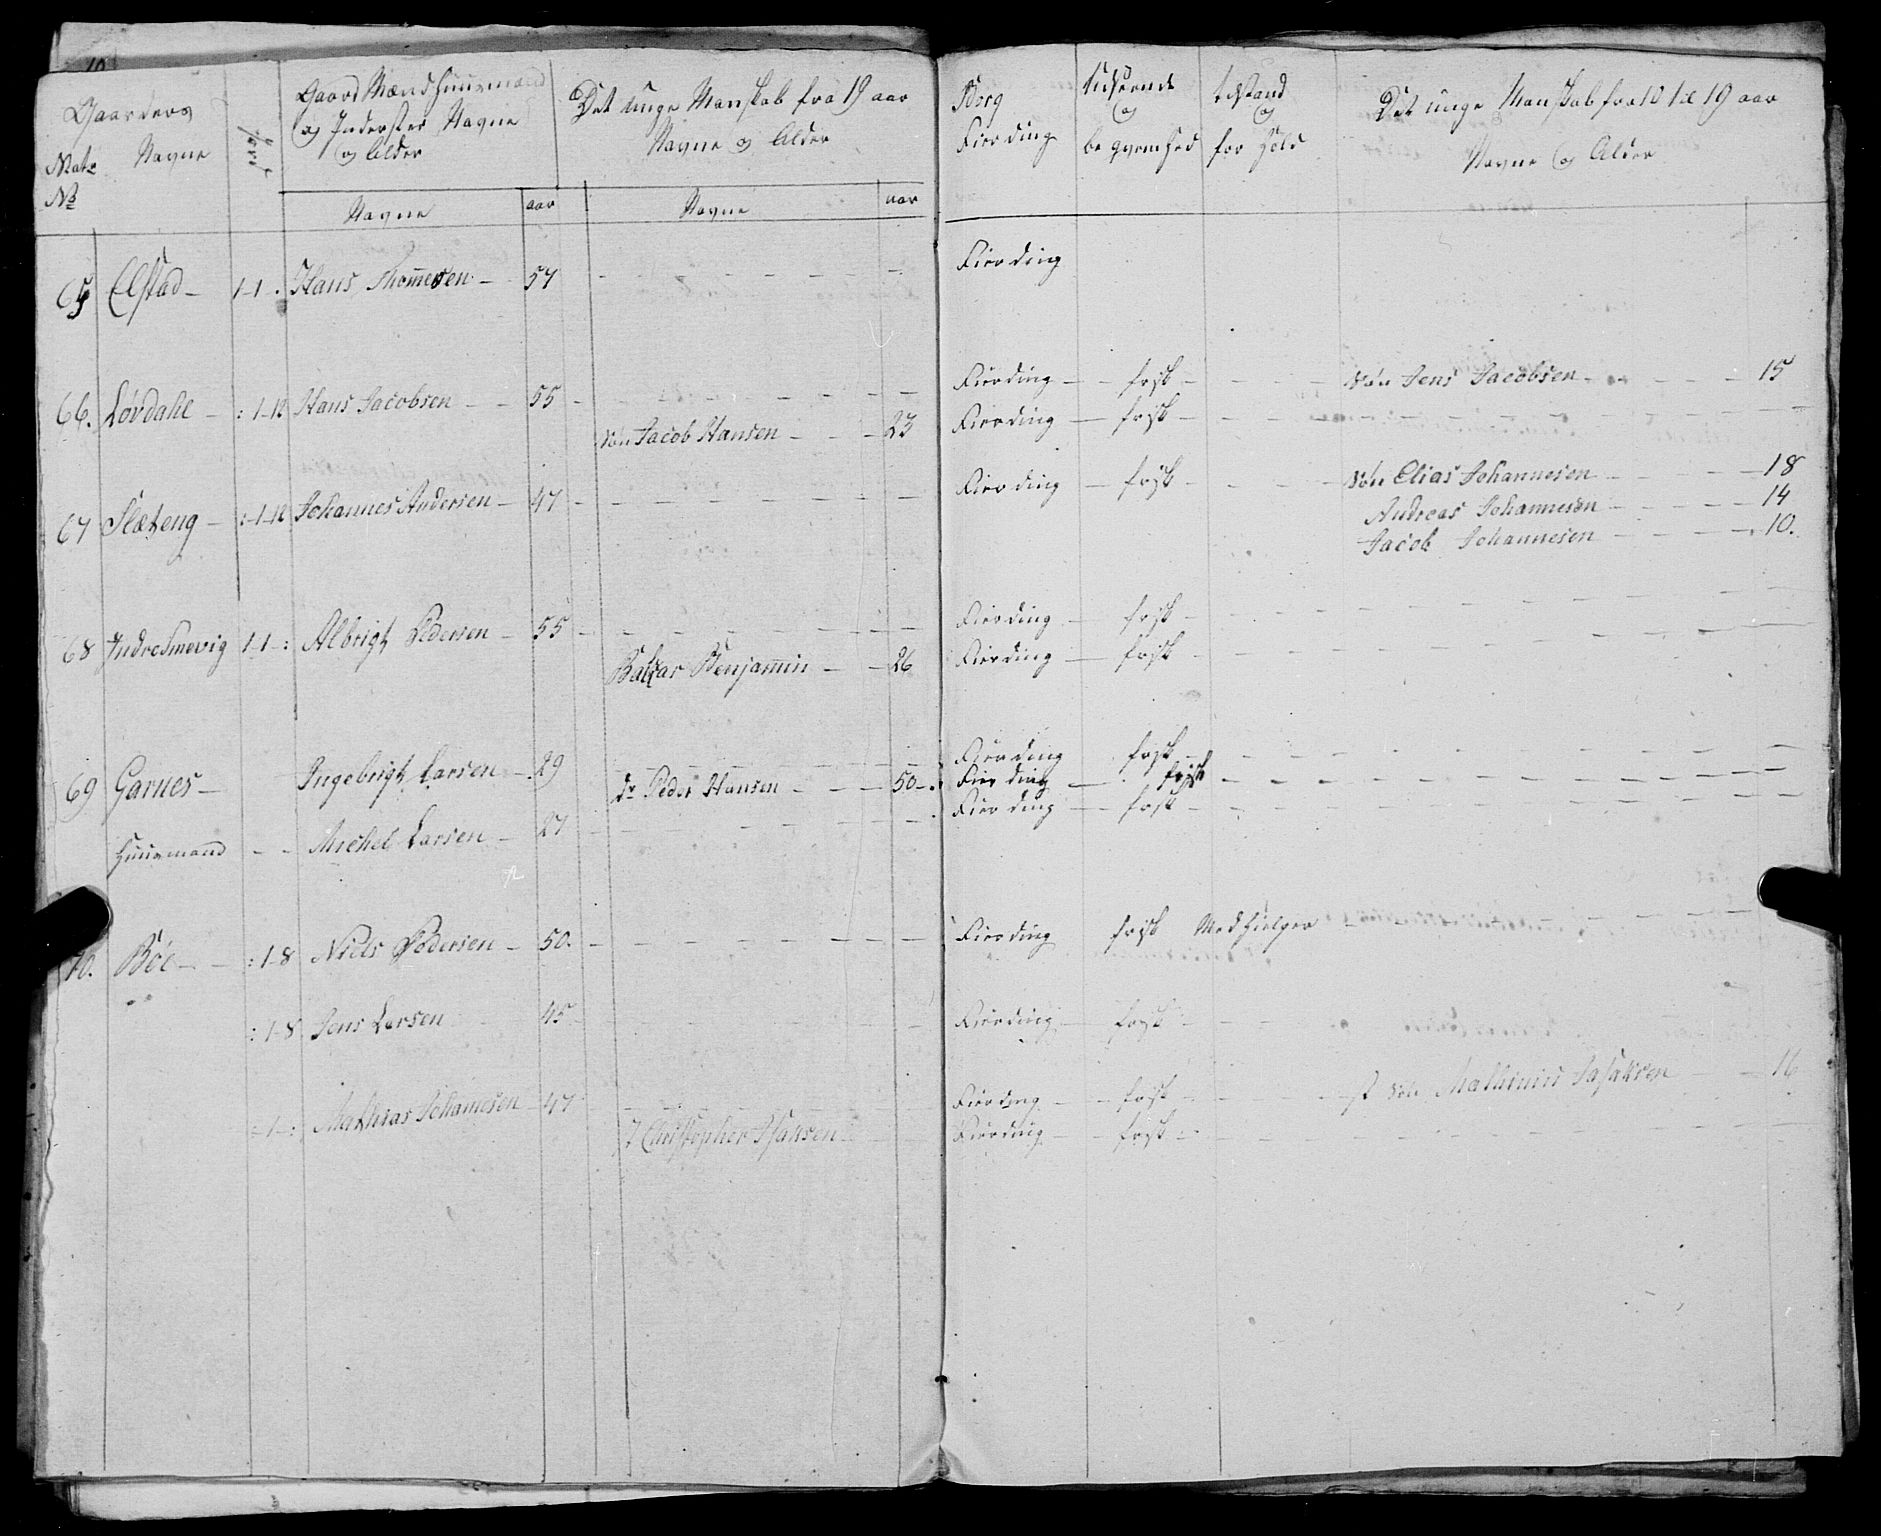 Gaardens
Matr Navne
No
Gaard Mænd Huusmænd
og Inderster Navne
og Alder
Det unge Manskab fra 19 aar
Navne og Alder
Navne aar Navne aar
Fierding
Udseende
og
beqvemhed
tilstand
og
forhold
Det unge Manskab fra 10 til 19 aar
Navne og Alder
65 Elstad - 1-1. Hans Thommesen - 57 Fierding
66. Løvdahl - :1-12 Hans Jacobsen - 55 Fierding - frisk - Søn Jens Jacobsen - 15
Søn Jacob Hansen - 23 Fierding - frisk
67 Slæteng - :-1-12 Johannes Andersen - 47 Fierding - frisk - Søn Elias Johannesen - 18
Andreas Johannesen - 14
Jacob Johannesen - 10.
68 Indre Smevig 1-1-: Albrigt Pedersen - 55 Fierding - frisk
Baltzar Benjamin - 26 Fierding - frisk
69 Garnes - Ingebrigt Larsen - 29 Fierding frisk
dr Peder Hansen - 50 - Fierding - frisk
Huusmand - Michel Larsen - 27 Fierding - frisk
70. Böe - :1-8 Niels Pedersen - 50. Fierding frisk Medhielper
:1-8 Jens Larsen 45 Fierding - frisk
:-1-: Mathias Johannesen - 47 Fierding - frisk - Søn Mathinus Isaksen - 16
Christopher Isaksen Fierding - frisk